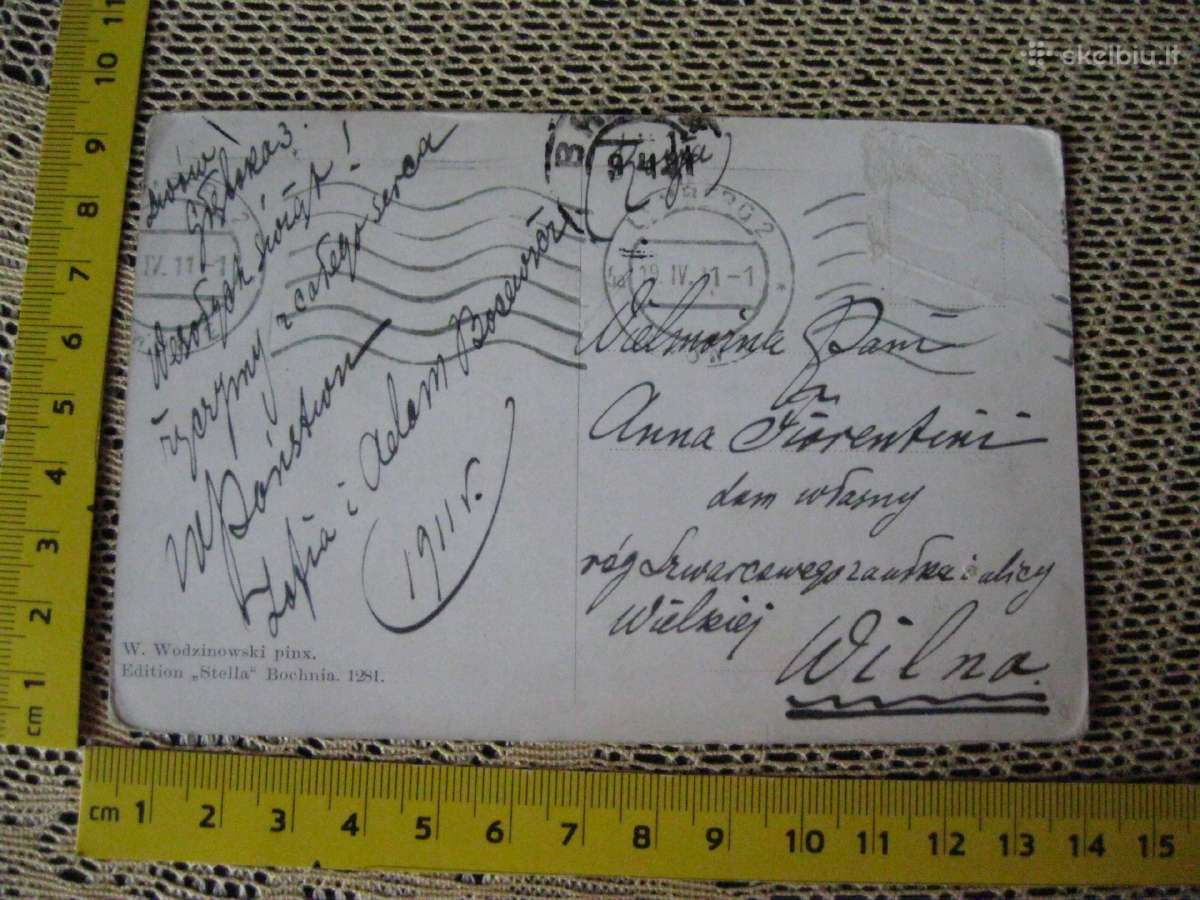 skelbiu.lt
Lwów
Wesołych świąt!
życzymy z całego serca
WPaństwu
Zofia i Adam
1911 r.
W. Wodzinowski pinx.
Edition „Stella" Bochnia. 1281.
IV. 11-1
9 4 11
19 IV. 11-1
Wielmożna Pani
Anna Fiorentini
dom własny
róg Szwarcowego zaułka i ulicy
Wielkiej
Wilno.
11
10
9
8
7
6
5
4
3
2
1
cm
cm 1 2 3 4 5 6 7 8 9 10 11 12 13 14 15